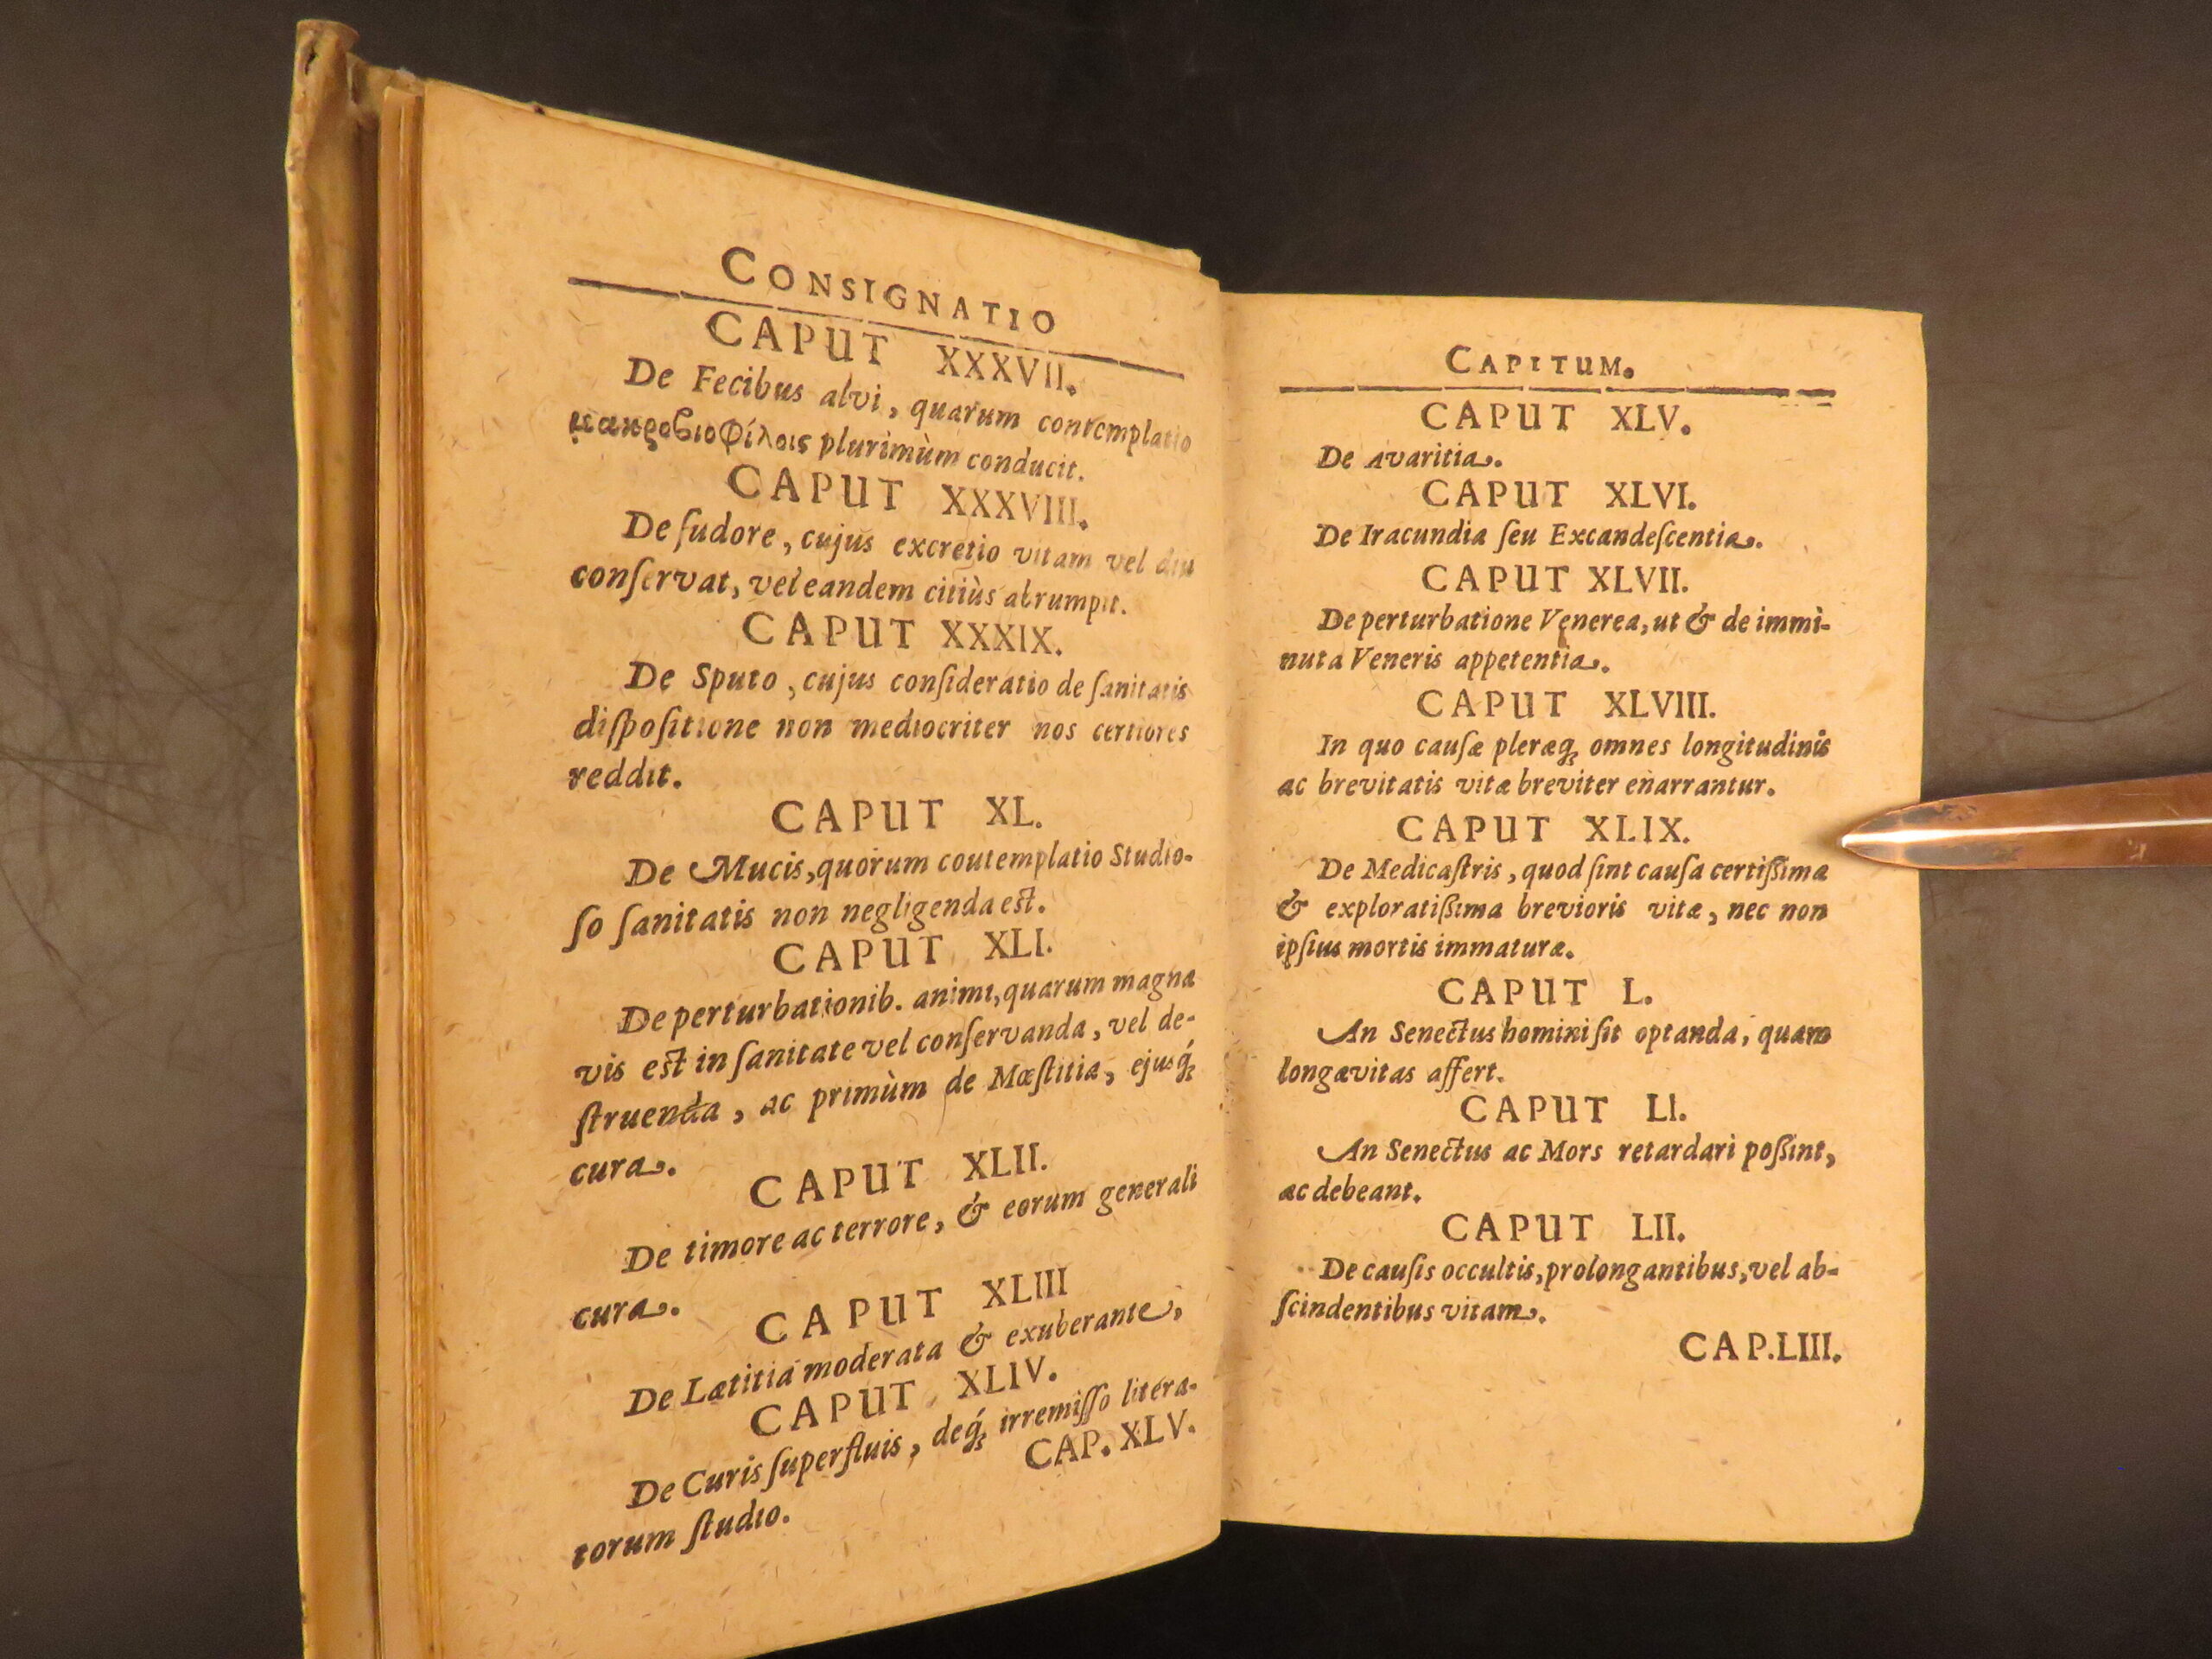 CONSIGNATIO
CAPUT XXXVII.
De Fecibus alvi, quarum contemplatio
μακροβιοφίλοις plurimùm conducit.
CAPUT XXXVIII.
De ſudore, cujus excretio vitam vel diu
conſervat, vel eandem citiùs abrumpit.
CAPUT XXXIX.
De Sputo, cujus conſideratio de ſanitatis
diſpoſitione non mediocriter nos certiores
reddit.
CAPUT XL.
De Mucis, quorum coutemplatio Studio-
ſo ſanitatis non negligenda eſt.
CAPUT XLI.
De perturbationib. animi, quarum magna
vis eſt in ſanitate vel conſervanda, vel de-
ſtruenda, ac primùm de Mœſtitia, ejusq́;
cura.
CAPUT XLII.
De timore ac terrore, & eorum generali
cura.
CAPUT XLIII
De Lætitia moderata & exuberante,
CAPUT XLIV.
De Curis ſuperfluis, deq́; irremiſſo litera-
torum ſtudio.
CAP. XLV.
CAPITUM.
CAPUT XLV.
De Avaritia.
CAPUT XLVI.
De Iracundia ſeu Excandeſcentia.
CAPUT XLVII.
De perturbatione Venerea, ut & de immi-
nuta Veneris appetentia.
CAPUT XLVIII.
In quo cauſæ pleræq; omnes longitudinis
ac brevitatis vitæ breviter enarrantur.
CAPUT XLIX.
De Medicaſtris, quod ſint cauſa certiſſima
& exploratiſſima brevioris vitæ, nec non
ipſius mortis immaturæ.
CAPUT L.
An Senectus homini ſit optanda, quam
longævitas affert.
CAPUT LI.
An Senectus ac Mors retardari poſſint,
ac debeant.
CAPUT LII.
De cauſis occultis, prolongantibus, vel ab-
ſcindentibus vitam.
CAP. LIII.